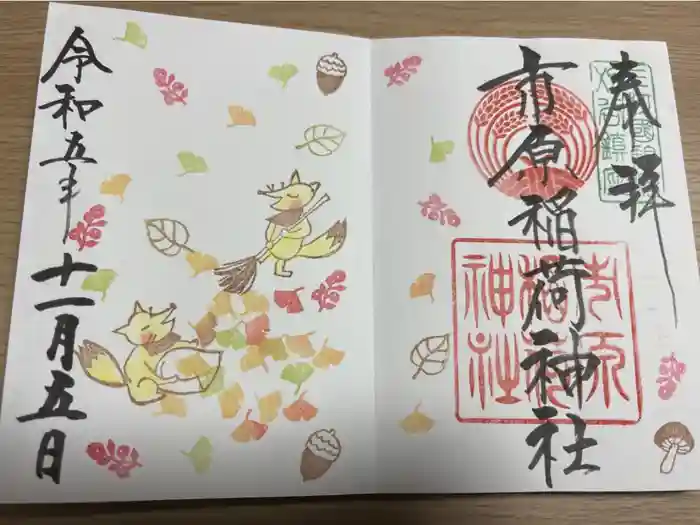 奉拝
市原稲荷神社
市原
稲荷
神社
令和五年
十一月五日